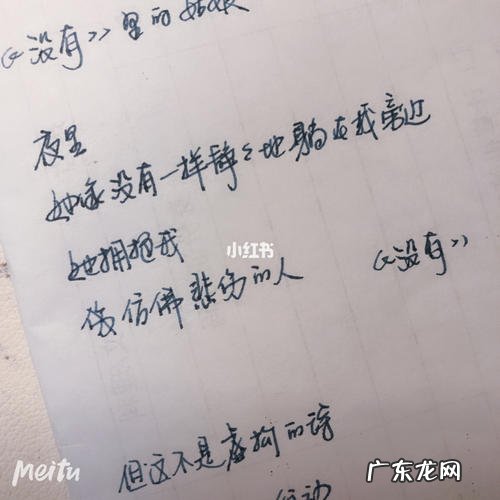 《没有》里的姑娘
夜里
她像没有一样静々地躺在我旁边
她拥抱我
像仿佛悲伤的人
《没有》
小红书
但这不是虚构的诗
Meitu
广东龙网